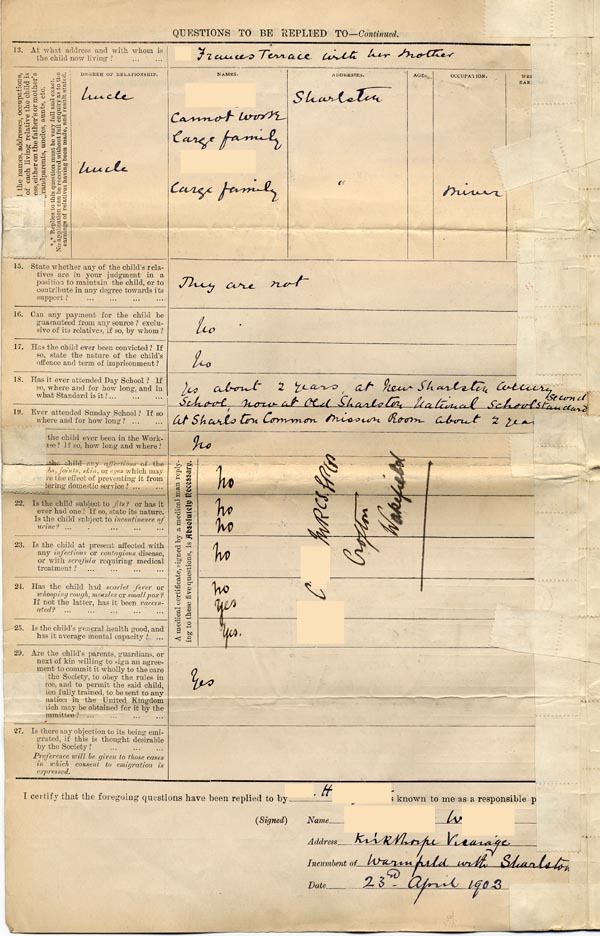 QUESTIONS TO BE REPLIED TO—Continued.
13. At what address and with whom is the child now living? ... ...
Frances Terrace with her Mother
the names, addresses, occupations, of each living relative the child is
either on the father's or mother's
grandparents, uncles, aunts, etc.
*** Replies to this question must be very full and exact.
No application can be received without full enquiry as to the
earnings of relatives having been made, and result stated.
DEGREE OF RELATIONSHIP. NAMES. ADDRESSES. AGE. OCCUPATION.
Uncle Sharlston
Cannot work
Large family
Uncle
Large family " Miner
15. State whether any of the child's rela-
tives are in your judgment in a
position to maintain the child, or to
contribute in any degree towards its
support? ... ... ... ...
They are not
16. Can any payment for the child be
guaranteed from any source? exclu-
sive of its relatives, if so, by whom?
No
17. Has the child ever been convicted? If
so, state the nature of the child's
offence and term of imprisonment?
No
18. Has it ever attended Day School? If
so, where and for how long, and in
what Standard is it? ... ...
Yes about 2 years, at New Sharlston Colliery
School, now at Old Sharlston National School Second Standard
19. Ever attended Sunday School? If so
where and for how long? ... ...
At Sharlston Common Mission Room about 2 yea
the child ever been in the Work-
se? If so, how long and where?
No
the child any affections of the
joints, skin, or eyes which may
the effect of preventing it from
tering domestic service? ...
No
22. Is the child subject to fits? or has it
ever had one? If so, state its nature.
Is the child subject to incontinence of
urine? ... ... ... ...
No
No
23. Is the child at present affected with
any infectious or contagious disease,
or with scrofula requiring medical
treatment? ... ... ...
No
24. Has the child had scarlet fever or
whooping cough, measles or small pox?
If not the latter, has it been vacci-
ated? ... ... ... ...
No
Yes
25. Is the child's general health good, and
has it average mental capacity? ...
Yes.
A medical certificate, signed by a medical man reply-
ing to these five questions, is Absolutely Necessary.
C
Crofton
Wakefield
29. Are the child's parents, guardians, or
next of kin willing to sign an agree-
ment to commit it wholly to the care
the Society, to obey the rules in
ce, and to permit the said child,
en fully trained, to be sent to any
nation in the United Kingdom
hich may be obtained for it by the
mmittee? ... ... ...
Yes
27. Is there any objection to its being emi-
grated, if this is thought desirable
by the Society? ... ... ...
Preference will be given to those cases
in which consent to emigration is
expressed.
I certify that the foregoing questions have been replied to by H is known to me as a responsible p
(Signed) Name W
Address Kirkthorpe Vicarage
Incumbent of Warmfield with Sharlston
Date 23rd April 1903